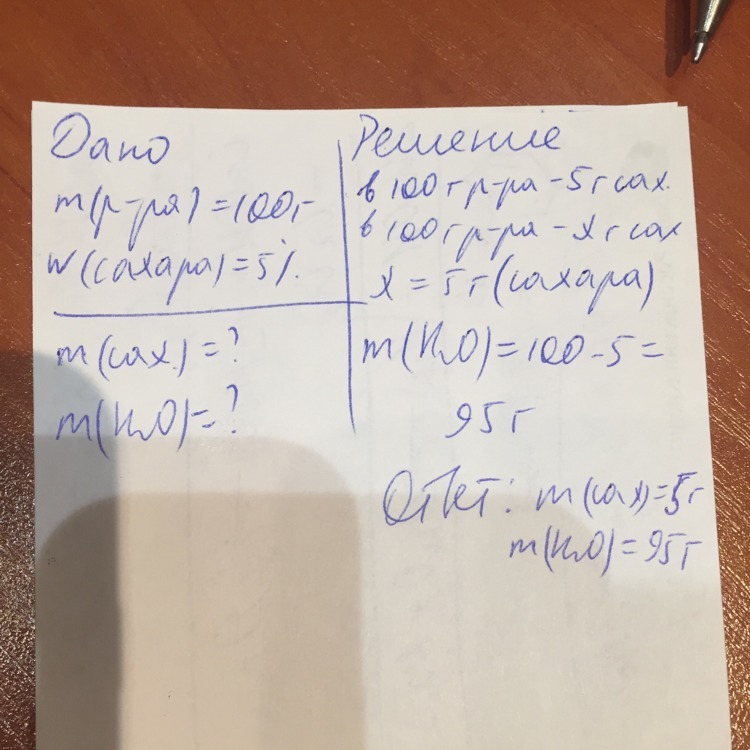 Дано
m(р-ра) = 100г
w(сахара) = 5%
m(сах.) = ?
m(H₂O) = ?
Решение
в 100г р-ра - 5г сах.
в 100г р-ра - xг сах
x = 5г (сахара)
m(H₂O) = 100 - 5 =
95г
Ответ: m(сах) = 5г
m(H₂O) = 95г